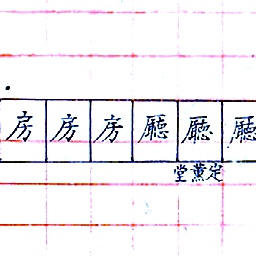 房房房廳廳廳
堂薰定